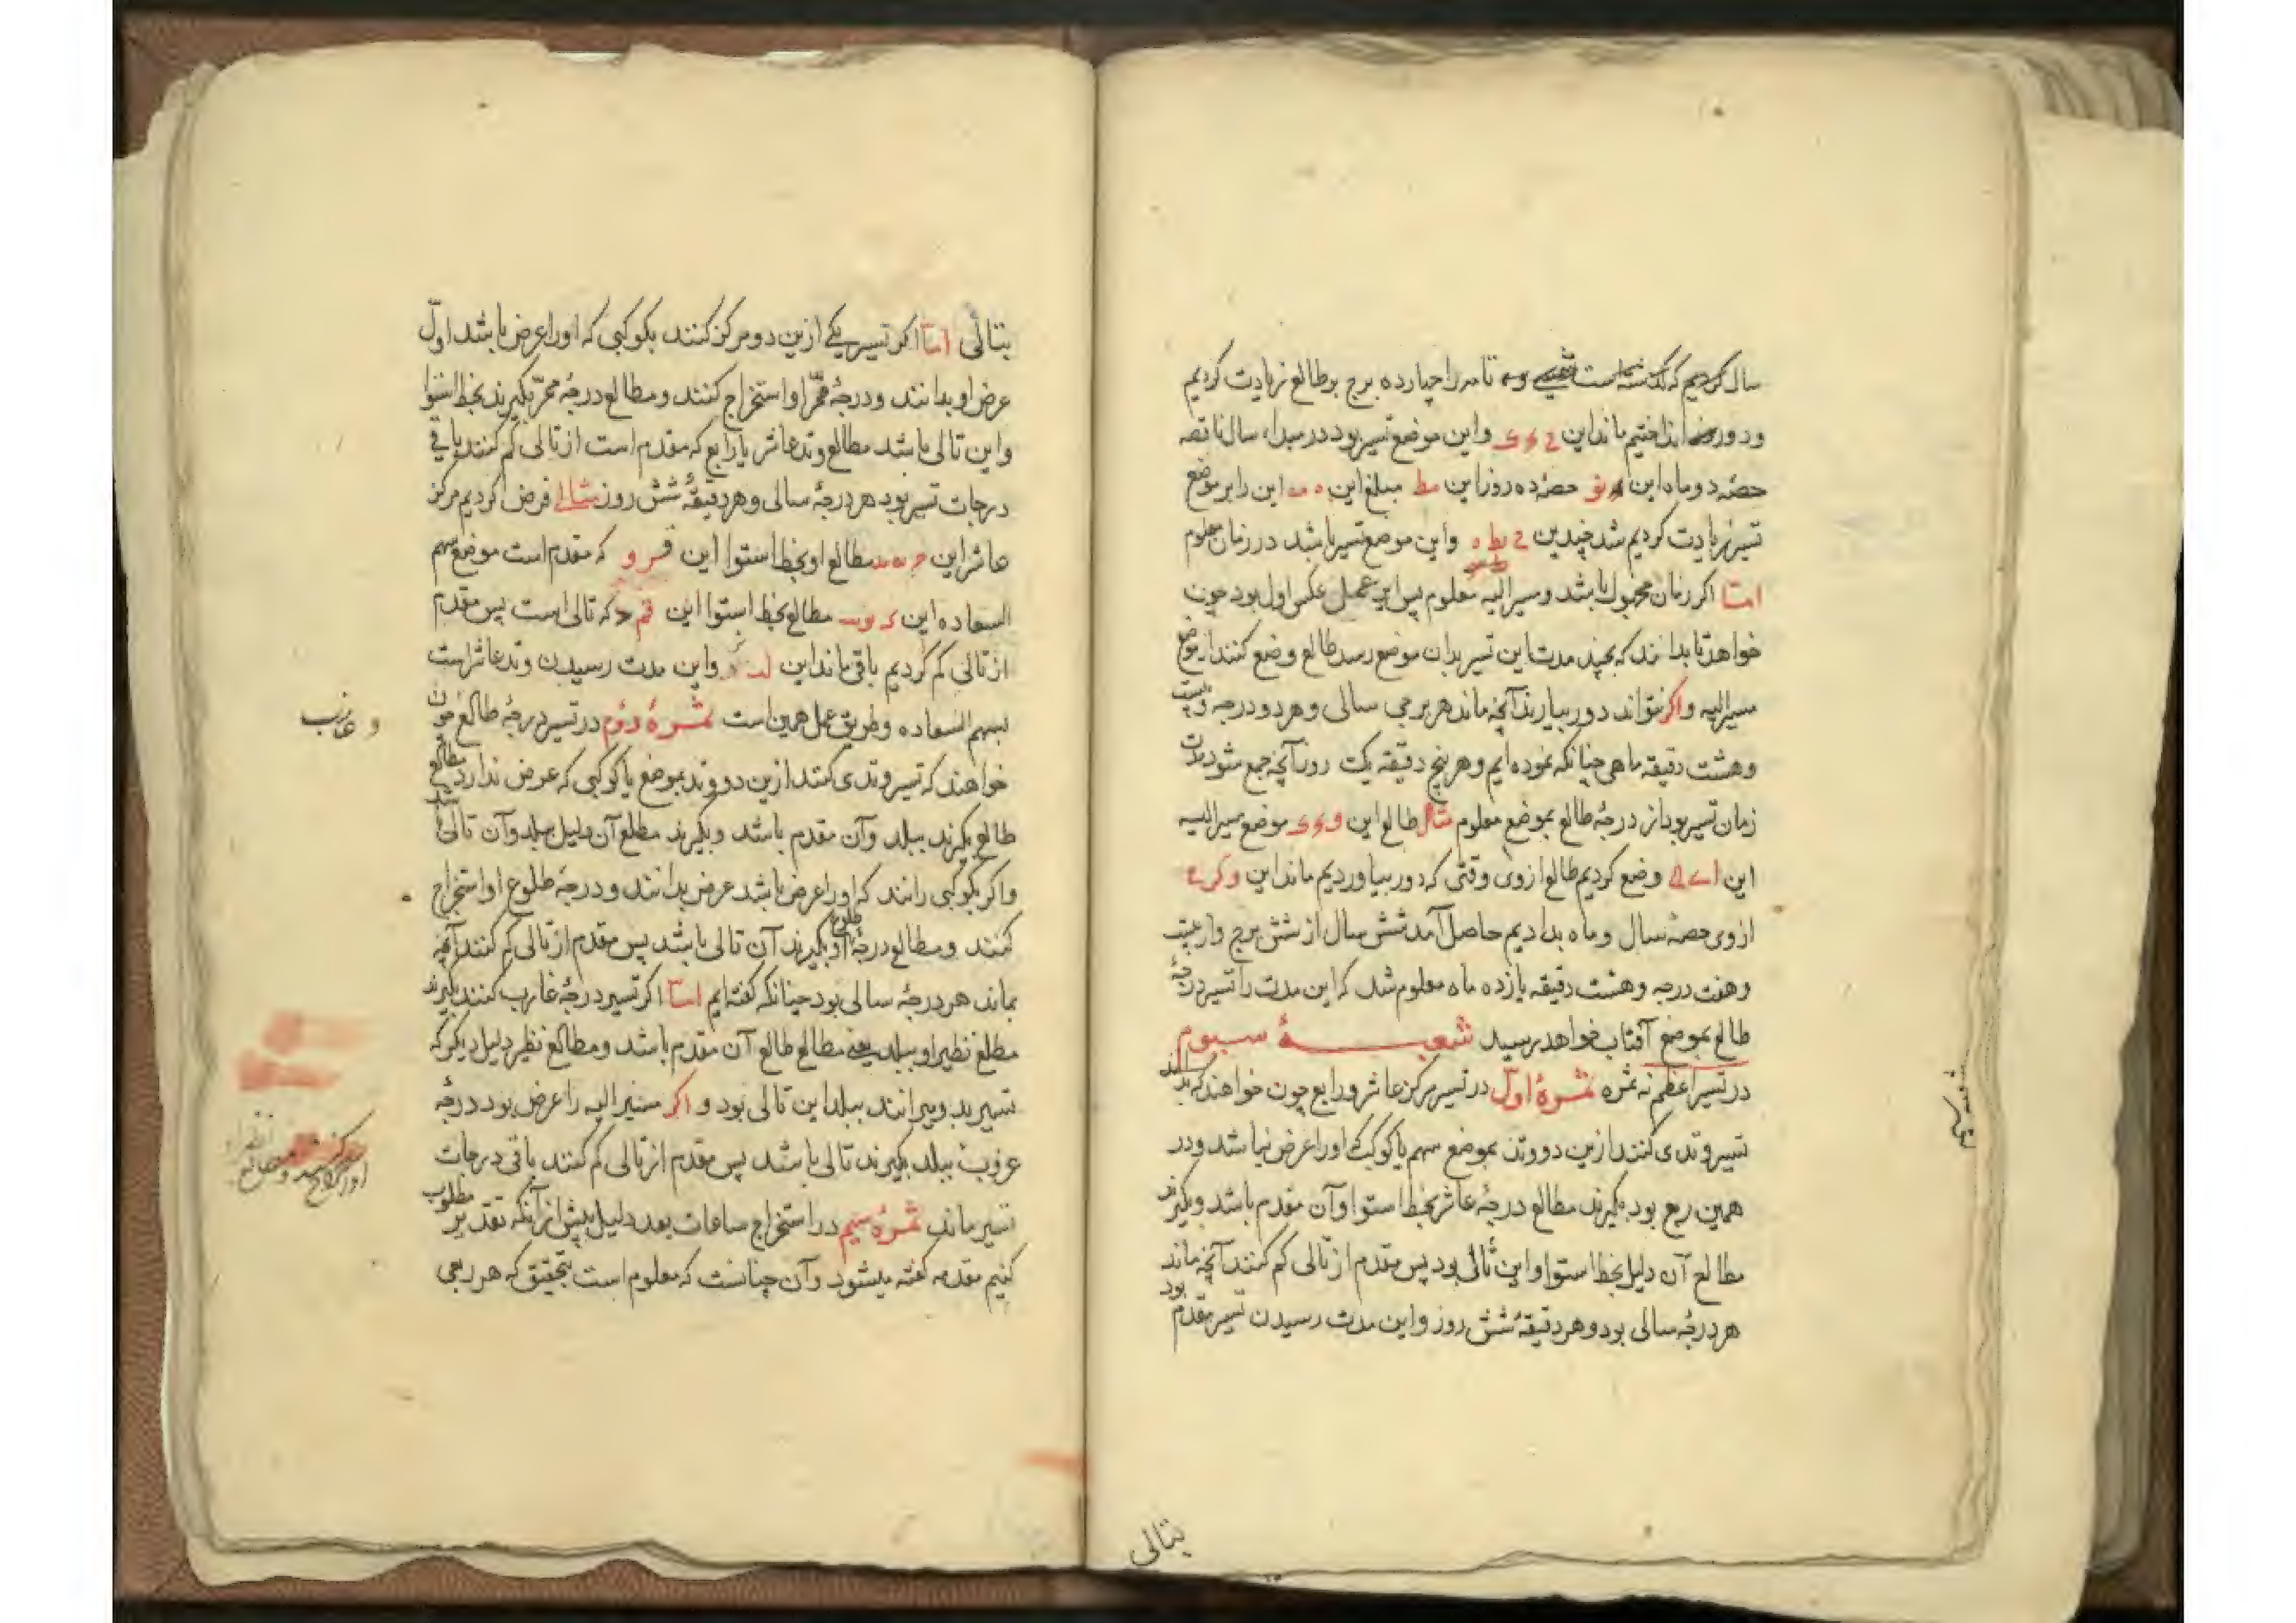 سال کردیم که گذشته است تا مه را چهارده برج بر طالع زیادت کردیم
و دور انداختیم ماند این ح ی ی و این موضع تسیر بود در مبداء سال ناقصه
حصهٔ دو ماه این نو حصهٔ ده روز این مط مبلغ این ه مه این را بر موضع
تسیر زیادت کردیم شد چندین ح یط ه و این موضع تسیر باشد در زمان معلوم
امّا اکر زمان مجهول باشد و مسیر الیه معلوم پس این عمل عکس اول بود چون
خواهد تا بدانند که بچند مدت این تسیر بدان موضع رسد طالع وضع کنند از موضع
مسیر الیه و اکر نتواند دور بیارند آنچه ماند هر برجی سالی و هر دو درجه و بیست
و هشت دقیقه ماهی چنانکه نموده ایم و هر پنج دقیقه یک روز آنچه جمع شود مدت
زمان تسیر بود از درجهٔ طالع بموضع معلوم مثال طالع این و ی ی موضع مسیر الیه
این وضع کردیم طالع از وی وقتی که دور بیاوردیم ماند این
از وی حصهٔ سال و ماه بدادیم حاصل آمد شش سال از شش برج و از بیست
و هفت درجه و هشت دقیقه یازده ماه معلوم شد که این مدت را تسیر درجهٔ
طالع بموضع آفتاب خواهد رسید شعبهٔ سیوم
در تسیر اعظم نه ثمره ثمرهٔ اول در تسیر مرکز عاشر و رابع چون خواهند که بدانند
تسیر وتدی کنند ازین دو وتد بموضع سهم یا کوکب که او را عرض نباشد و در
همین ربع بود بکیرند مطالع درجهٔ عاشر بخط استوا و آن مقدم باشد و بکیرند
مطالع آن دلیل بخط استوا و این تالی بود پس مقدم از تالی کم کنند آنچه ماند
هر درجهٔ سالی بود و هر دقیقهٔ شش روز و این مدت رسیدن تسیر مقدم بود
بتالی
بتالی امّا اکر تسیر یکی ازین دو مرکز کنند بکوکبی که او را عرض باشد اوّل
عرض او بدانند و درجهٔ ممرّ او استخراج کنند و مطالع درجهٔ ممرّ بکیرند بخط استوا
و این تالی باشد مطالع وتد عاشر یا رابع که مقدم است از تالی کم کنند باقی
درجات تسیر بود هر درجهٔ سالی و هر دقیقهٔ شش روز مثال فرض کردیم مرکز
عاشر این مطالع او بخط استوا این که مقدم است موضع سهم
السعاده این مطالع بخط استوا این که تالی است پس مقدم
از تالی کم کردیم باقی ماند این و این مدت رسیدن وتد عاشر است
بسهم السعاده و طریق عمل همین است ثمرهٔ دوّم در تسیر درجهٔ طالع چون
و غارب
خواهند که تسیر وتدی کنند ازین دو وتد بموضع یا کوکبی که عرض ندارد مطالع
طالع بکیرند ببلد و آن مقدم باشد و بکیرند مطلع آن دلیل ببلد و آن تالی باشد
و اکر بکوکبی رانند که او را عرض باشد عرض بدانند و درجهٔ طلوع او استخراج
کنند و مطالع درجهٔ طلوع او بکیرند آن تالی باشد پس مقدم از تالی کم کنند آنچه
بماند هر درجهٔ سالی بود چنانکه کفته ایم امّا اکر تسیر درجهٔ غارب کنند بکیرند
مطلع نظیر او ببلد یعنی مطالع طالع آن مقدم باشد و مطالع نظیر دلیل دیکر که
تسیر بدو میرانند ببلد این تالی بود و اکر مسیر الیه را عرض بود درجهٔ
غروب ببلد بکیرند تالی باشد پس مقدم از تالی کم کنند باقی درجات
تسیر ماند ثمرهٔ سیم در استخراج ساعات بعد دلیل پیش از آنکه تقدیر مطلوب
کنیم مقدمه کفته میشود و آن چنانست که معلوم است بتحقیق که هر ربعی